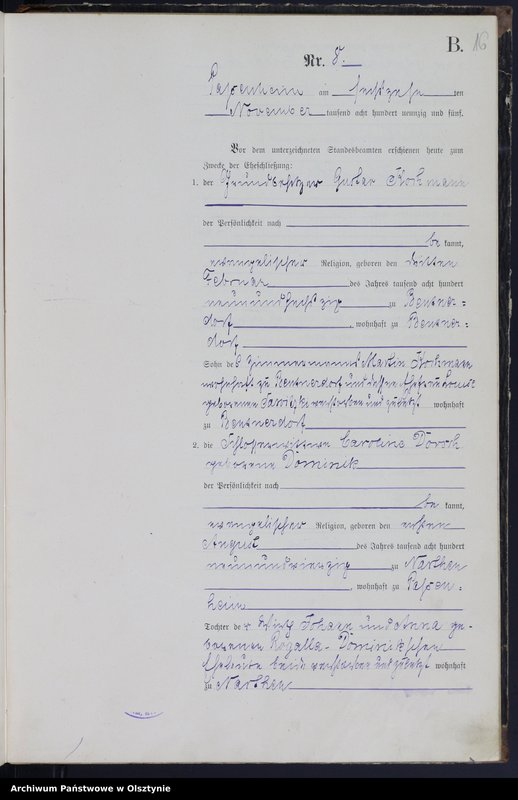 B. 16
Nr. 8.
Passenheim am sechszehnten
November tausend acht hundert neunzig und fünf.
Vor dem unterzeichneten Standesbeamten erschienen heute zum
Zwecke der Eheschließung:
1. der Grundbesitzer Gustav
der Persönlichkeit nach
be kannt,
evangelischer Religion, geboren den dritten
Februar des Jahres tausend acht hundert
neunundsechszig zu Reusner=
dorf, wohnhaft zu Reusner=
dorf
Sohn des Zimmermanns Martin
wohnhaft zu Reusnerdorf und dessen Ehefrau Louise
geborenen verstorben und zuletzt wohnhaft
zu Reusnerdorf
2. die Schlosserwittwe Caroline
geborene Dominik
der Persönlichkeit nach
be kannt,
evangelischer Religion, geboren den ersten
August des Jahres tausend acht hundert
neunundvierzig zu Narthen
, wohnhaft zu Passen=
heim
Tochter der Wirth Johann und Anna ge-
borenen Rogalla-Dominikschen
Eheleute beide verstorben und zuletzt wohnhaft
zu Narthen
Archiwum Państwowe w Olsztynie